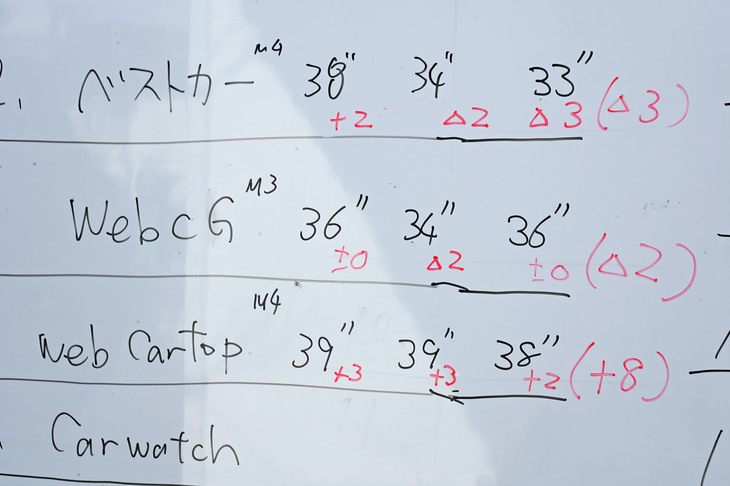 2. ベストカー M4 38" 34" 33"
+2 △2 △3 (△3)
WebCG M3 36" 34" 36"
±0 △2 ±0 (△2)
web Cartop M4 39" 39" 38"
+3 +3 +2 (+8)
Carwatch